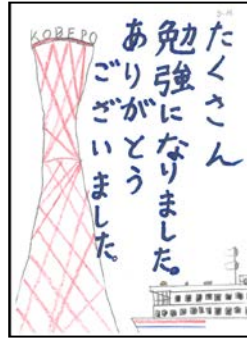 たくさん
勉強になりました。
ありがとう
ございました。
KOBEPO